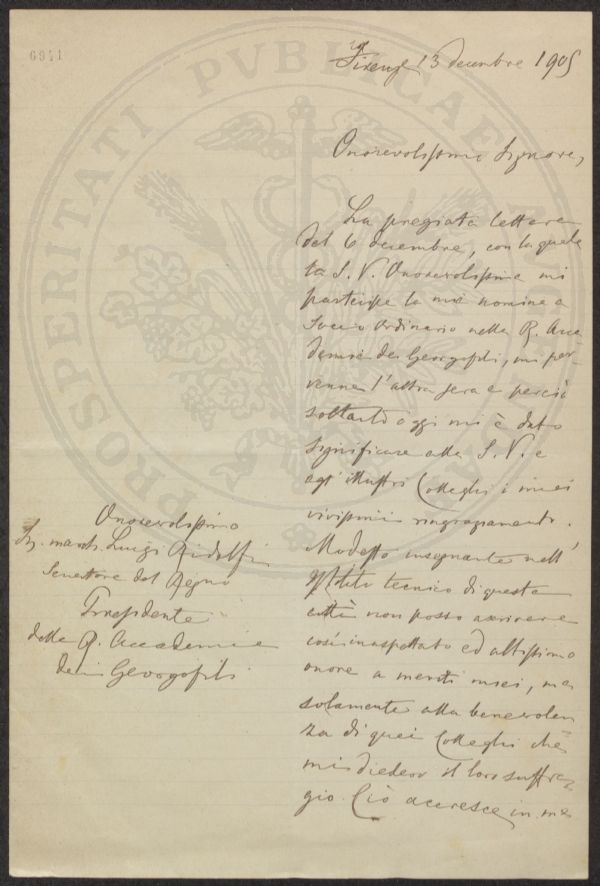 6941
Firenze 13 decembre 1905
Onorevolissimo Signore,
La pregiata lettera
del 6 decembre, con la quale
la S. V. Onorevolissima mi
partecipa la mia nomina a
Socio Ordinario nella R. Acca-
demia dei Georgofili, mi per-
venne l'altra sera e perciò
soltanto oggi mi è dato
significare alla S. V. e
agl'illustri Colleghi i miei
vivissimi ringraziamenti.
Modesto insegnante nell'
Istituto tecnico di questa
città non posso ascrivere
così inaspettato ed altissimo
onore a meriti miei, ma
solamente alla benevolen
za di quei Colleghi che
mi diedero il loro suffra-
gio. Ciò accresce in me
Onorevolissimo
Sig. march. Luigi Ridolfi
Senatore del Regno
Presidente
della R. Accademia
dei Georgofili
PROSPERITATI PVBLICAE